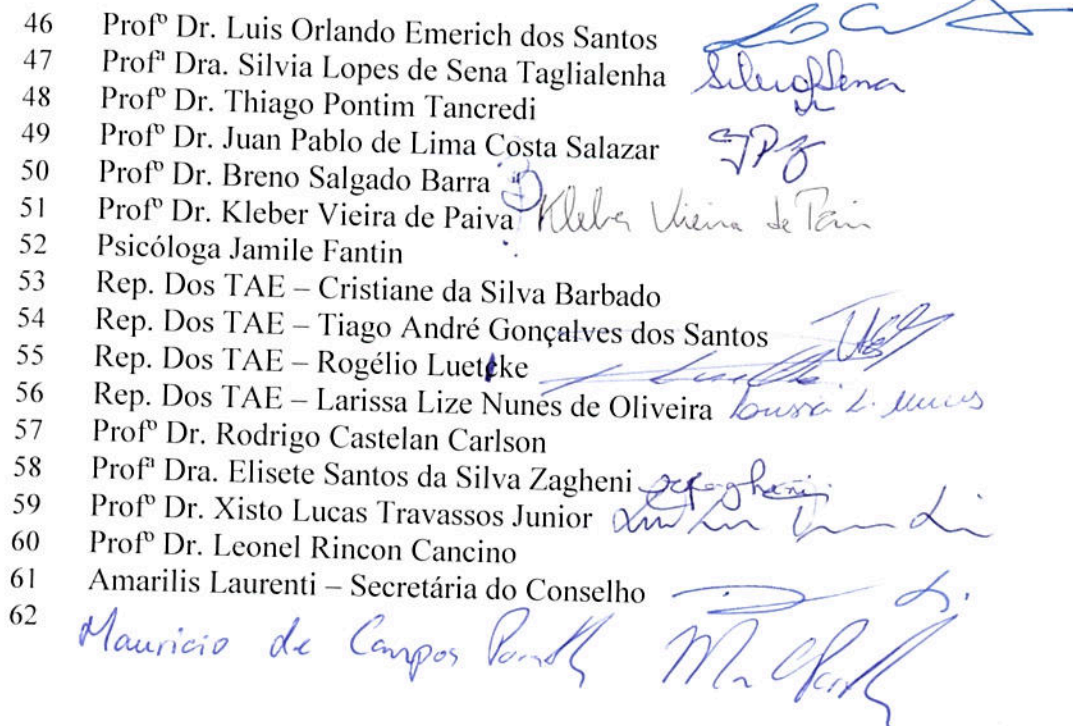 46 Profº Dr. Luis Orlando Emerich dos Santos
47 Profª Dra. Silvia Lopes de Sena Taglialenha
48 Profº Dr. Thiago Pontim Tancredi
49 Profº Dr. Juan Pablo de Lima Costa Salazar
50 Profº Dr. Breno Salgado Barra
51 Profº Dr. Kleber Vieira de Paiva Kleber Vieira de
52 Psicóloga Jamile Fantin
53 Rep. Dos TAE – Cristiane da Silva Barbado
54 Rep. Dos TAE – Tiago André Gonçalves dos Santos
55 Rep. Dos TAE – Rogélio Luetcke
56 Rep. Dos TAE – Larissa Lize Nunes de Oliveira
57 Profº Dr. Rodrigo Castelan Carlson
58 Profª Dra. Elisete Santos da Silva Zagheni
59 Profº Dr. Xisto Lucas Travassos Junior
60 Profº Dr. Leonel Rincon Cancino
61 Amarilis Laurenti – Secretária do Conselho
62
Mauricio de Campos